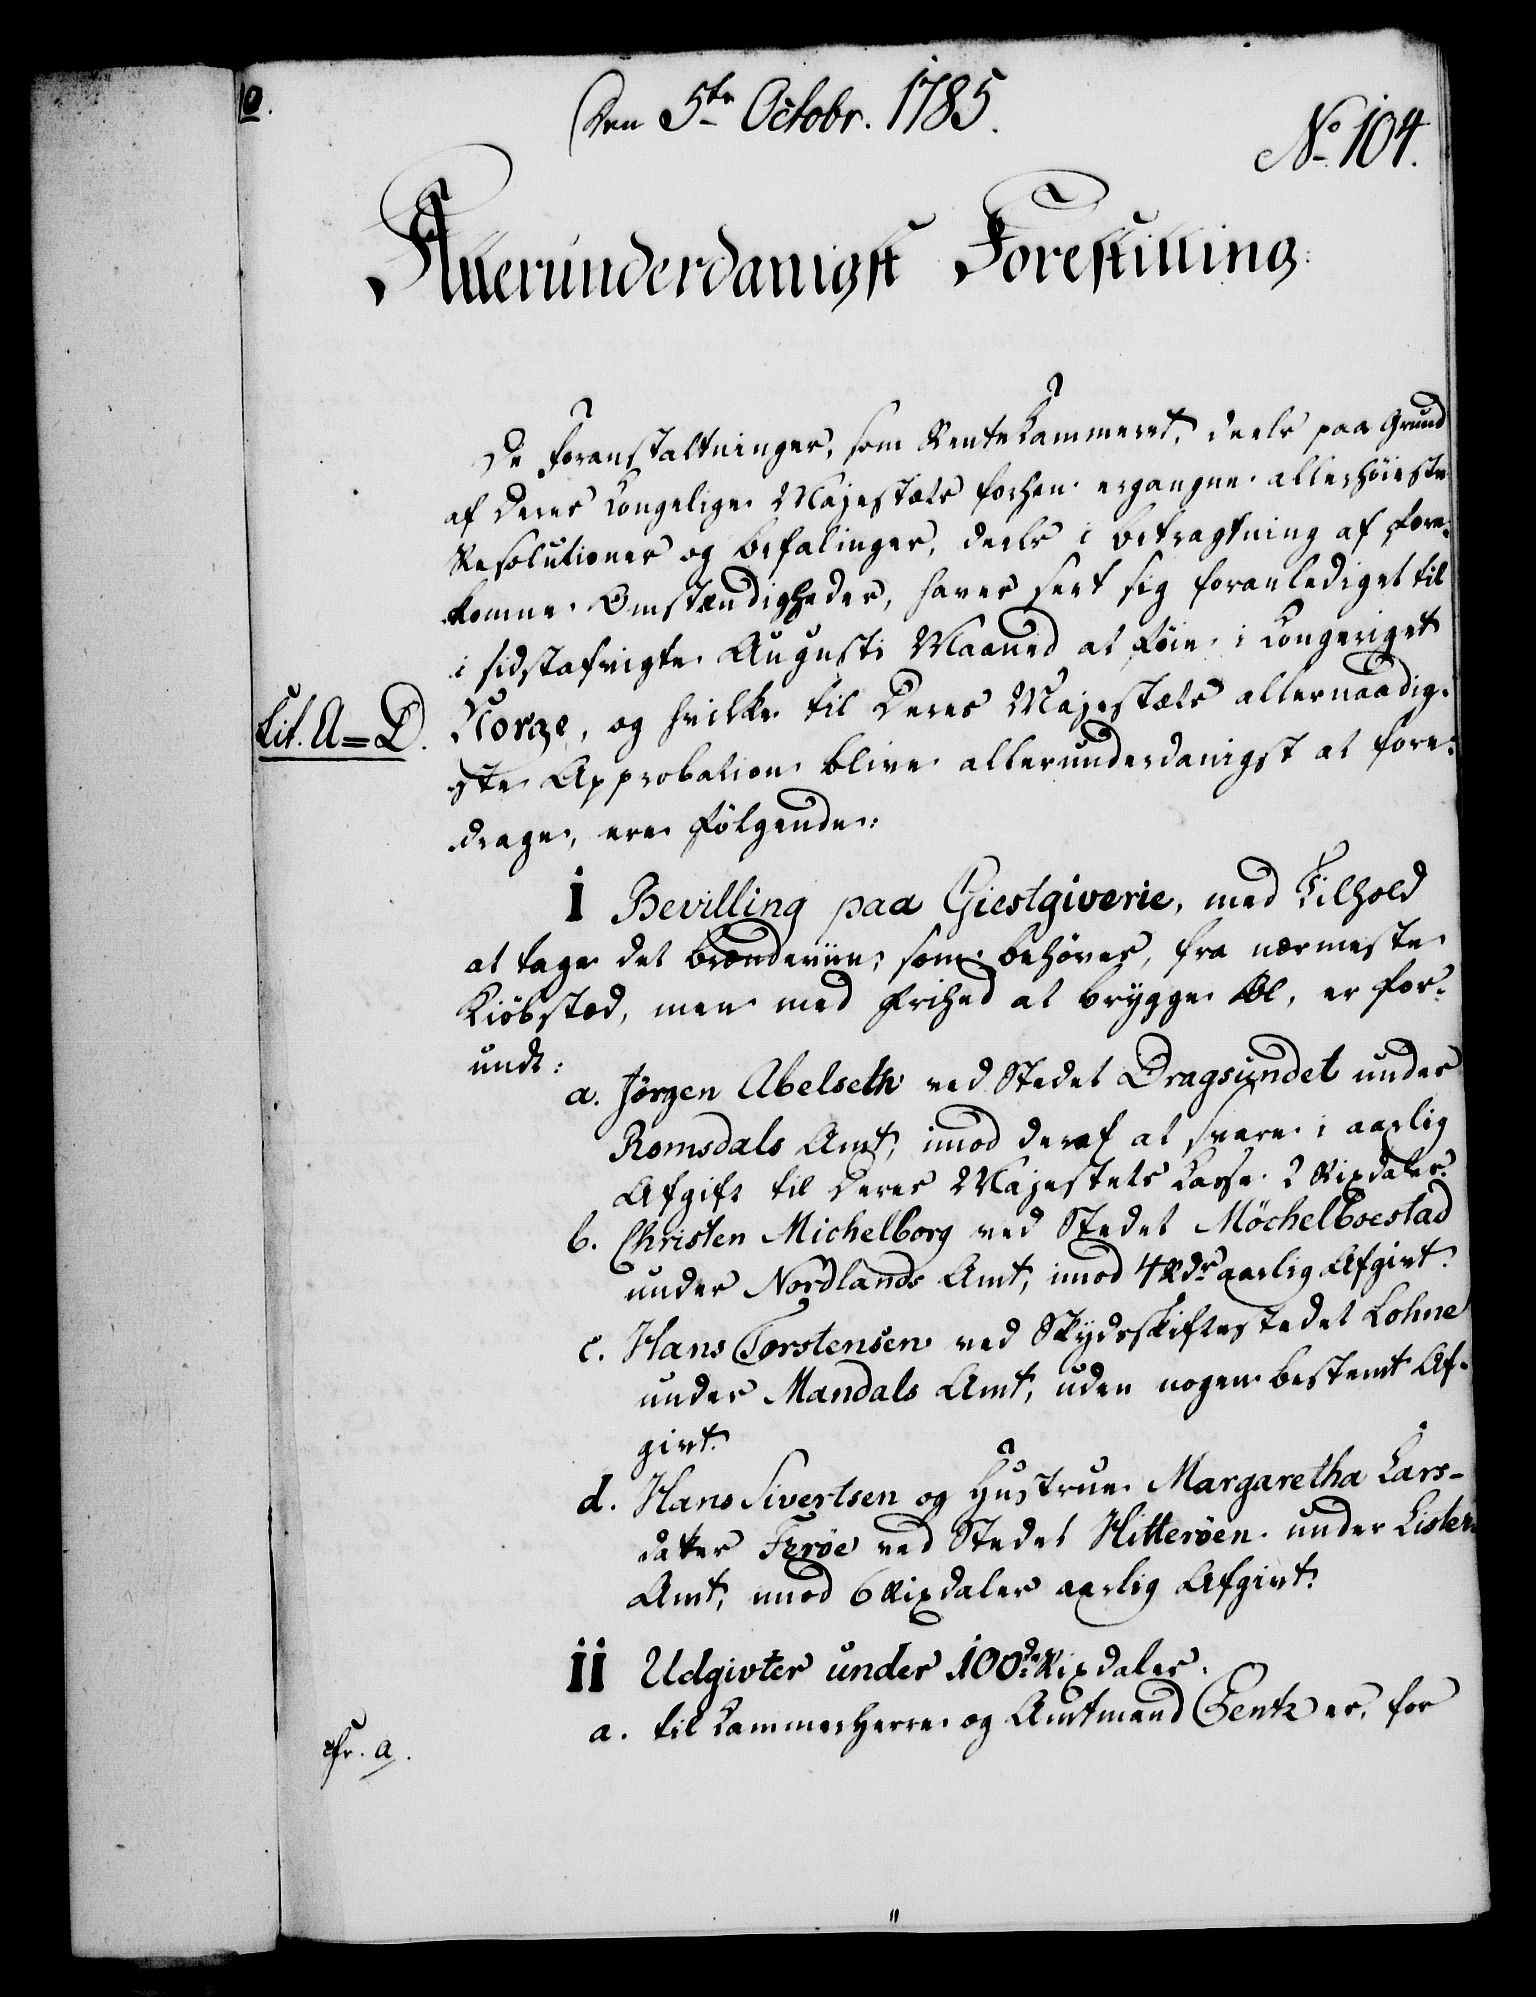 Den 5te Octobr. 1785.
No 104.
Allerunderdanigst Forestilling:
De Foranstaltninger, som Rentekammeret, deels paa Grund
af Deres Kongelige Majestæts forhen ergangne allerhöieste
Resolutioner og Befalinger, deels i Betragtning af Fore-
komne Omstændigheder, haver seet sig foranlediget til
i sidstafvigte Augusti Maaned at föie i Kongeriget
Lit. A=D.
Norge, og hvilke til Deres Majestæts allernaadig-
ste Approbation blive allerunderdanigst at fore-
drage, ere følgende:
I Bevilling paa Giestgiverie, med Tilhold
at tage det Brændeviin, som behöves, fra nærmeste
Kiöbsted, men med Frihed at brygge Øl, er for-
undt:
a. Jørgen Abelseth ved Stedet Dragsundet under
Romsdals Amt, imod deraf at svare i aarlig
Afgift til Deres Majestets Casse 2 Rixdaler.
b. Christen Michelborg ved Stedet Möchelboestad
under Nordlands Amt, imod 4 Rdr aarlig Afgivt.
c. Hans Torstensen ved Skydsskiftestedet Lohne
under Mandals Amt, uden nogen bestemt Af-
givt.
d. Hans Sivertsen og Hustrue Margaretha Lars-
datter Ferøe ved Stedet Hitterøen under Lister
Amt, imod 6 Rixdaler aarlig Afgivt.
II Udgivter under 100de Rixdaler.
cfr. a.
a. til Kammerherre og Amtmand Gentz er, for